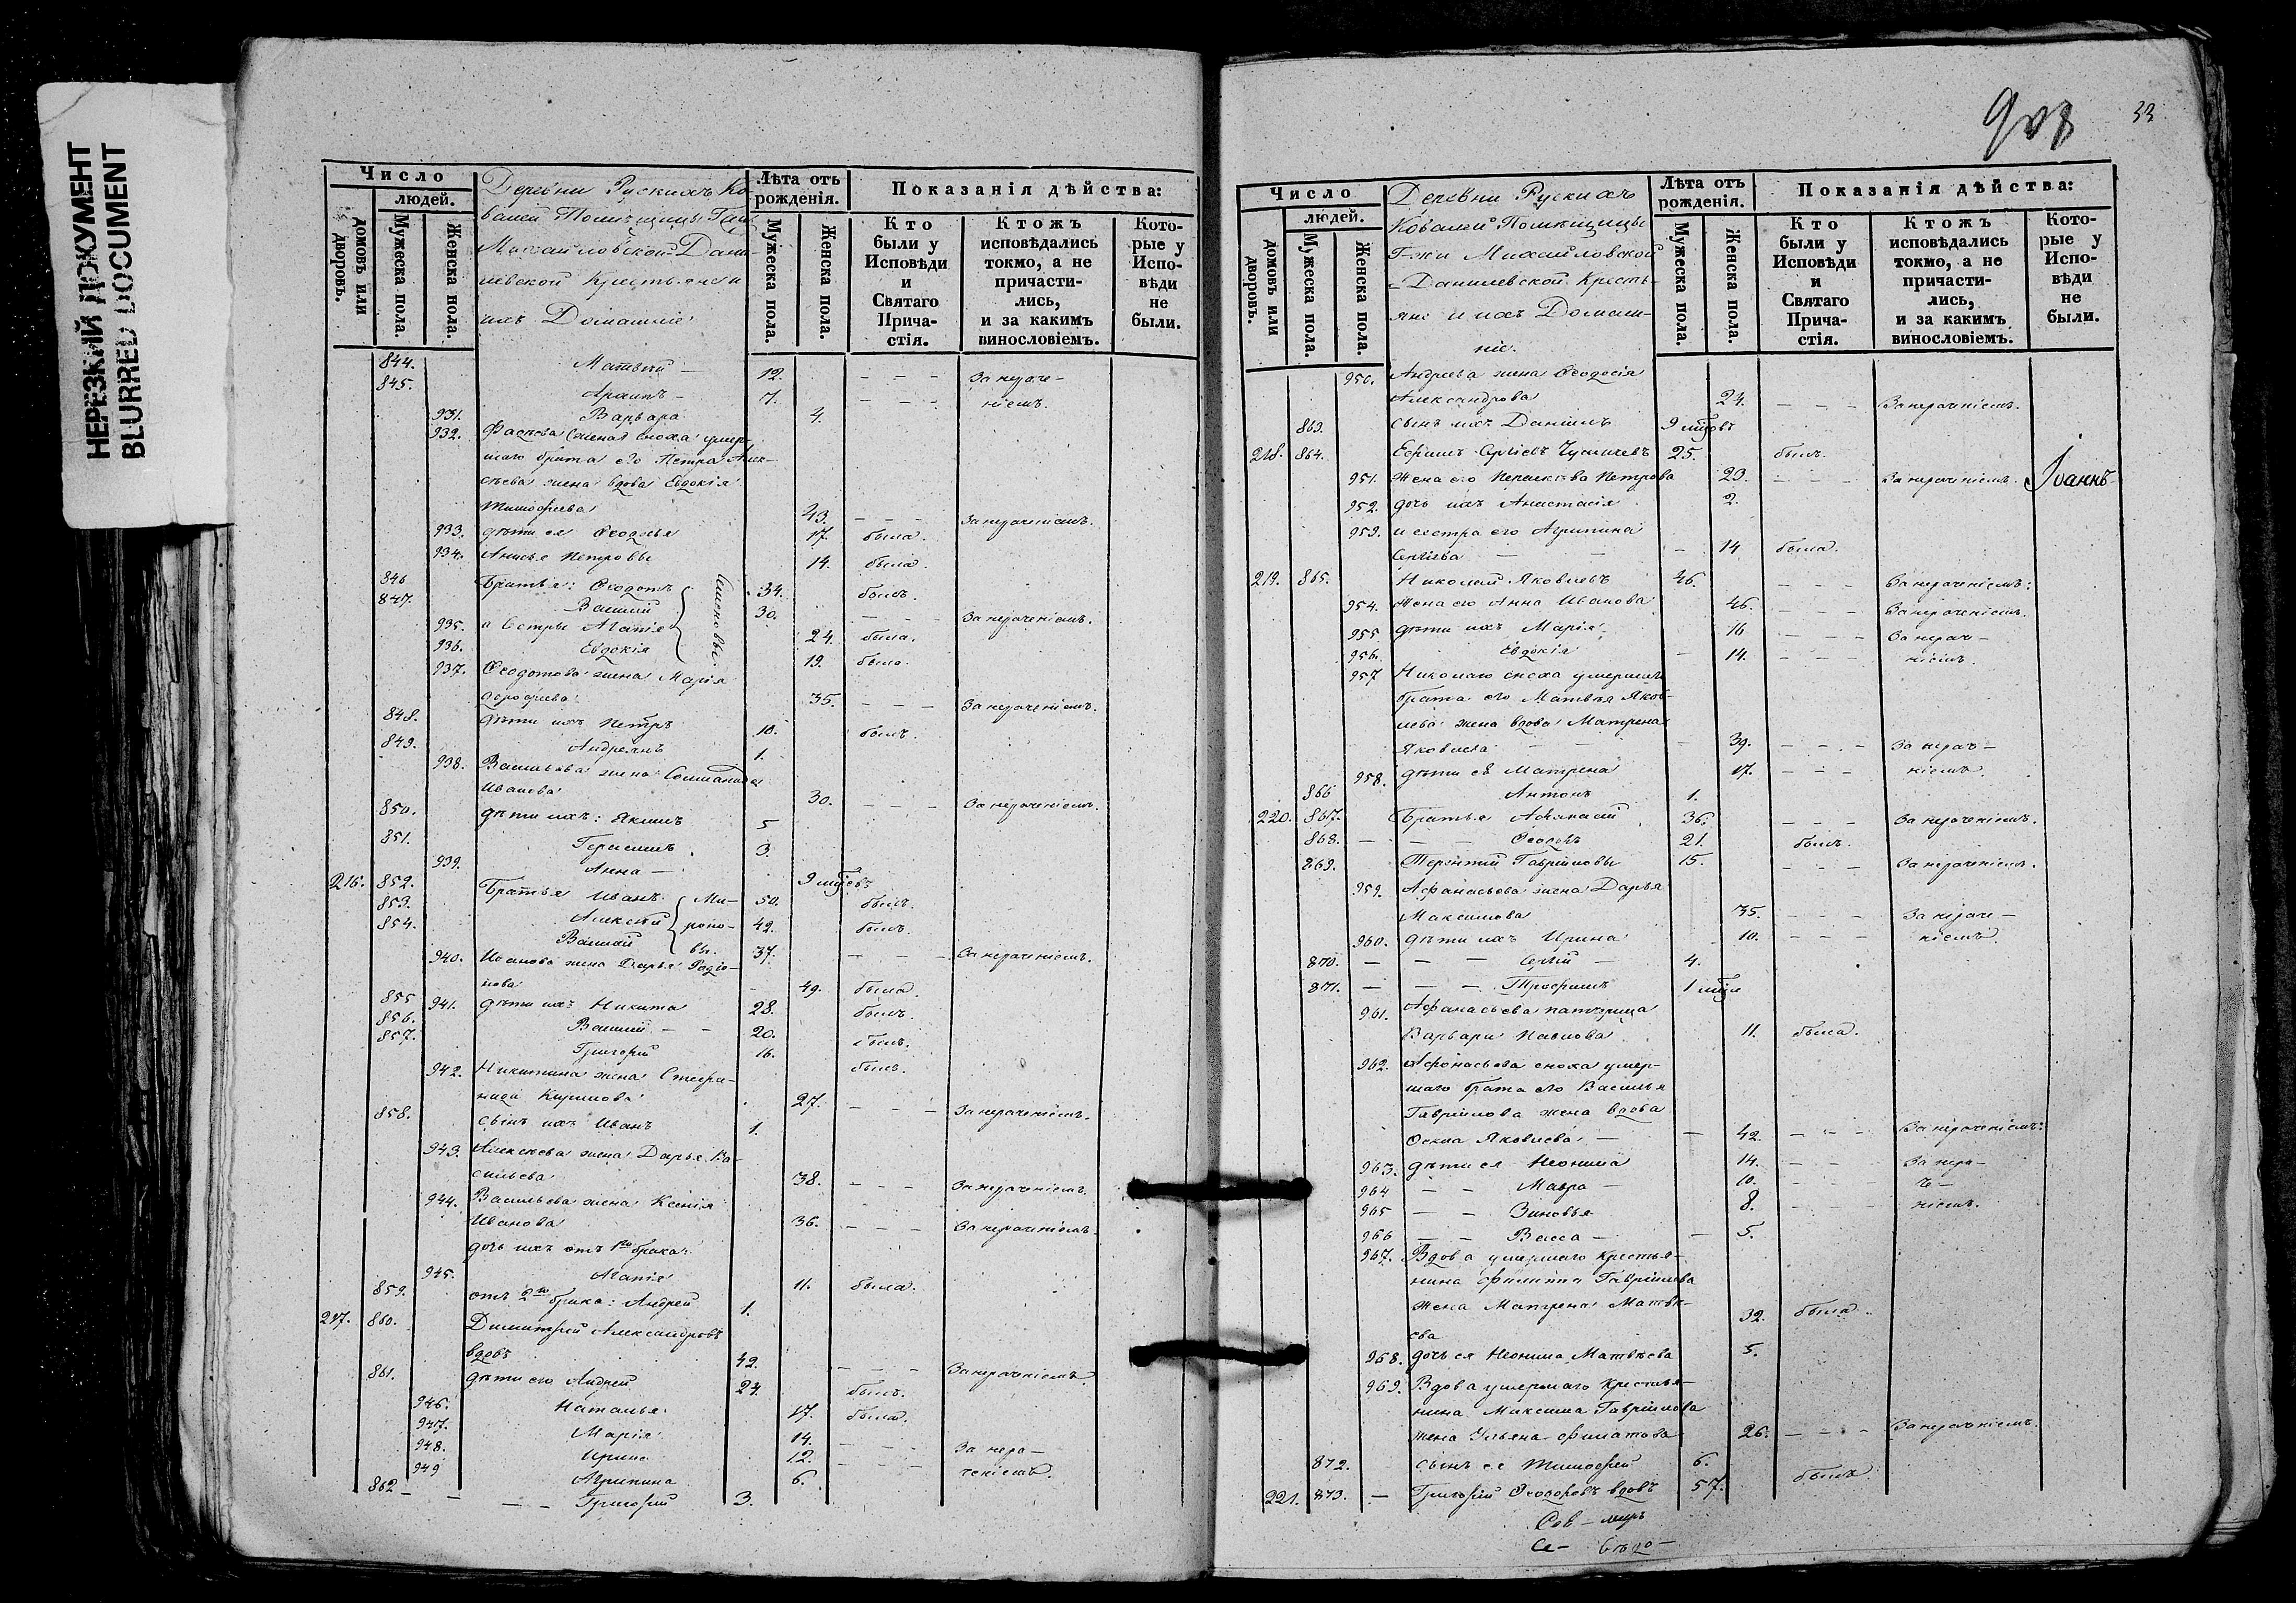 НЕРЕЗКИЙ ДОКУМЕНТ
BLURRED DOCUMENT
Число
людей.
домовъ или дворовъ.
Мужеска пола.
Женска пола.
Деревни Рускихъ Ко-
валей Помѣщицы Г-жи
Михайловской-Дани-
левской Крестьяне и
ихъ Домашніе
Лѣта отъ рожденія.
Мужеска пола.
Женска пола.
Показанія дѣйства:
Кто были у Исповѣди и Святаго Прича-стія.
Ктожъ исповѣдались токмо, а не причасти-лись, и за какимъ винословіемъ.
Кото-рые у Испо-вѣди не были.
844. Матвей — 12. — — — За нераче-
845. Архипъ — 7. — — — ніемъ.
931. Варвара 4.
932. сноха умер-
шаго брата его Петра Алек-
сѣева жена вдова Евдокія
Тимофеева 43. — — — За нераченіемъ.
933. дѣти ея Феодосья 17. была.
934. Анисья Петровы 14. была.
846 Братья: Феодотъ 34. былъ.
847. Василій 30. — — — За нераченіемъ.
935. и Сестры Агапія 24. была.
936. Евдокія 19. была.
937. Феодотова жена Марія
Дорофеева 35. — — — За нераченіемъ.
848. дѣти ихъ Петръ 10. былъ.
849. Андреянъ 1.
938. Васильева жена Соломанида
Иванова 30. — — — За нераченіемъ.
850. дѣти ихъ: Якимъ 5
851. Герасимъ 3.
939. Анна — 9 мцевъ
216. 852. Братья Иванъ Ми- 50. былъ.
853. Алексѣй роно- 42. былъ.
854. Василій вы. 37. — — — За нераченіемъ.
940. Иванова жена Дарья Родіо-
нова 49. была.
855 941. дѣти ихъ Никита 28. былъ.
856. Василій — — 20. былъ.
857. Григорій 16. былъ.
942. Никитина жена Стефа-
нида Кирилова 27. — — — За нераченіемъ.
858. сынъ ихъ Иванъ 1.
943. Алексѣева жена Дарья Ва-
сильева 38. — — — За нераченіемъ.
944. Васильева жена Ксенія
Иванова 36. — — — За нераченіемъ.
дочь ихъ отъ 1го брака:
945. Агапія 11. была.
859. отъ 2го брака: Андрей 1.
217. 860. Димитрій Александровъ
вдовъ 42. — — — За нераченіемъ.
861. дѣти его Андрей 24. былъ.
946. Наталья. 17. была.
947. Марія 14. — — —
948. Ирина 12. — — — За нера-
949 Агрипина 6. ченіемъ.
862 — — — Григорій 3.
908
33
Число
людей.
домовъ или дворовъ.
Мужеска пола.
Женска пола.
Деревни Рускихъ
Ковалей Помѣщицы
Г-жи Михайловской
-Данилевской Кресть-
яне и ихъ Домаш-
ніе.
Лѣта отъ рожденія.
Мужеска пола.
Женска пола.
Показанія дѣйства:
Кто были у Исповѣди и Святаго Прича-стія.
Ктожъ исповѣдались токмо, а не причасти-лись, и за какимъ винословіемъ.
Кото-рые у Испо-вѣди не были.
950. Андреева жена Феодосія
Александрова 24. — — — За нераченіемъ.
863. сынъ ихъ Даніилъ 9 мцовъ
218. 864. Ефимъ Сергіевъ 25. былъ.
951. жена его Петрова 23. — — — За нераченіемъ. Іоаннъ
952. дочь ихъ Анастасія 2.
953. и сестра его Агрипина
Сергіева — — 14 была.
219. 865. Николай Яковлевъ 46. — — — За нераченіемъ:
954. Жена его Анна Иванова 46. — — — За нераченіемъ.
955 дѣти ихъ Марія 16 — — — За нерач-
956. Евдокія — 14. — — — ніемъ.
957 Николаю сноха умершаго
брата его Матвѣя Яков-
лева жена вдова Матрена
Яковлева — — 39. — — — За нерач-
958. дѣти ея Матрена 17. — — — ніемъ.
866 Антонъ 1.
220. 867. Братья Афанасій 36. — — — За нераченіемъ.
868. — — — Феодоръ 21. былъ.
869. Терентій Гавриловы 15. — — За нераченіемъ.
959. Афанасьева жена Дарья
Максимова 35. — — — За нераче-
960. дѣти ихъ Ирина 10. — — — ніемъ.
870. — — — Сергій — 4.
871. — — — Трофимъ 1 мця
961. Афанасьева патчерица
Варвара Павлова 11. была.
962. Афонасьева сноха умер-
шаго брата его Василья
Гаврилова жена вдова
Фекла Яковлева — — 42. — — — За нераченіемъ:
963. дѣти ея Неонила 14. — — — За нера-
964 — — Мавра — 10. — — — че-
965 — — Зиновья 8. — — — ніемъ.
966 — — Васса — — 5.
967. Вдова умершаго крестья-
нина Филипа Гаврилова
жена Матрена Матвѣ-
ева 32. была.
968. дочь ея Неонила Матвѣева 5.
969. Вдова умершаго крестья-
нина Максима Гаврилова
жена Ульяна Филатова 26. — — — За нераченіемъ.
872. сынъ ея Тимофей 6.
221. 873. — Григорій Феодоровъ вдовъ 57. былъ